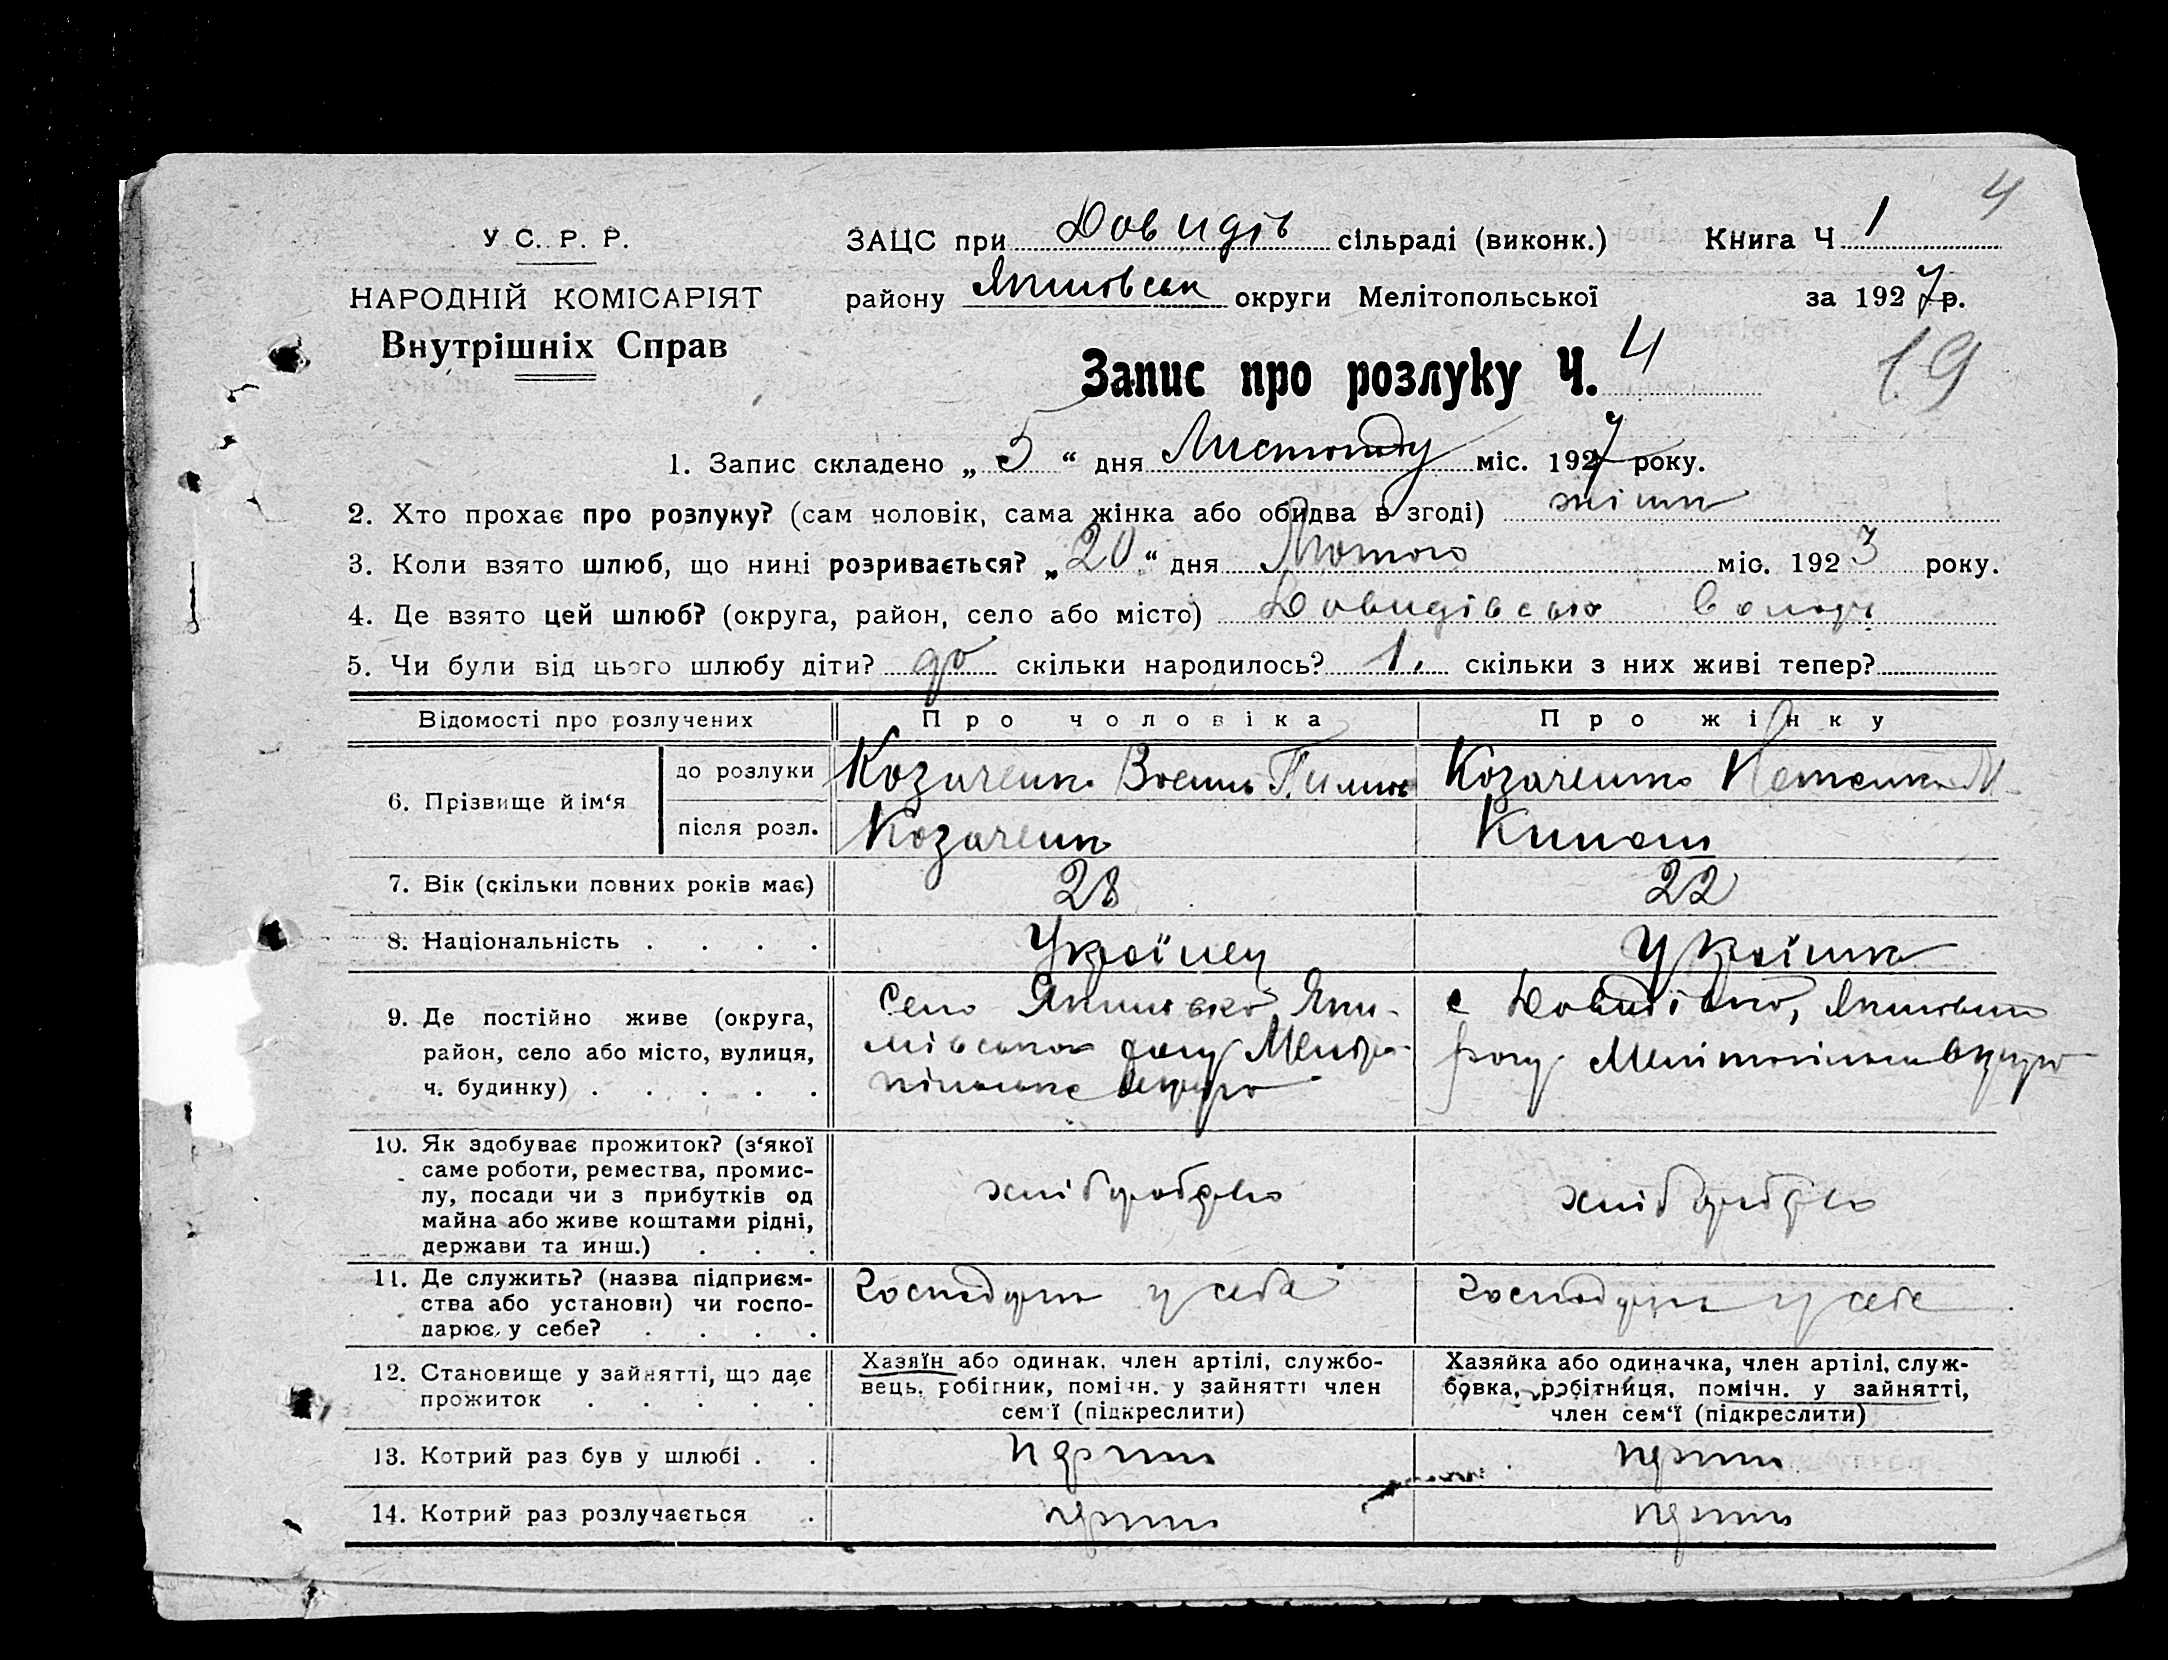 4
У.С.Р.Р. ЗАЦС при Довидів сільраді (виконк.) Книга Ч 1
НАРОДНІЙ КОМІСАРІЯТ району Якимівськ округи Мелітопольської за 1927 р.
Внутрішніх Справ
Запис про розлуку Ч. 4
19
1. Запис складено „5“ дня Листопаду міс. 1927 року.
2. Хто прохає про розлуку? (сам чоловік, сама жінка або обидва в згоді) жінка
3. Коли взято шлюб, що нині розривається? „20“ дня Лютого міс. 1923 року.
4. Де взято цей шлюб? (округа, район, село або місто) Довидівськ
5. Чи були від цього шлюбу діти? да скільки народилось? 1. скільки з них живі тепер?
Відомості про розлучених Про чоловіка Про жінку
6. Прізвище й ім‘я
до розлуки Козаченко Козаченко
після розл. Козаченко
7. Вік (скільки повних років має) 28 22
8. Національність . . . . Українец Українка
9. Де постійно живе (округа, Село Якимівка Яки- с Довидівка,
район, село або місто, вулиця, мівського
ч. будинку) . . . . .
10. Як здобуває прожиток? (з‘якої
саме роботи, ремества, промис-
лу, посади чи з прибутків од хліборобство хліборобство
майна або живе коштами рідні,
держави та инш.) . . .
11. Де служить? (назва підприєм- у себе у себе
ства або установи) чи госпо-
дарює у себе? . . . .
12. Становище у зайнятті, що дає
прожиток . . . . .
Хазяїн або одинак, член артілі, службо-
вець, робітник, помічн. у зайнятті член
сем‘ї (підкреслити)
Хазяйка або одиначка, член артілі, служ-
бовка, робітниця, помічн. у зайнятті,
член сем‘ї (підкреслити)
13. Котрий раз був у шлюбі . .
14. Котрий раз розлучається .